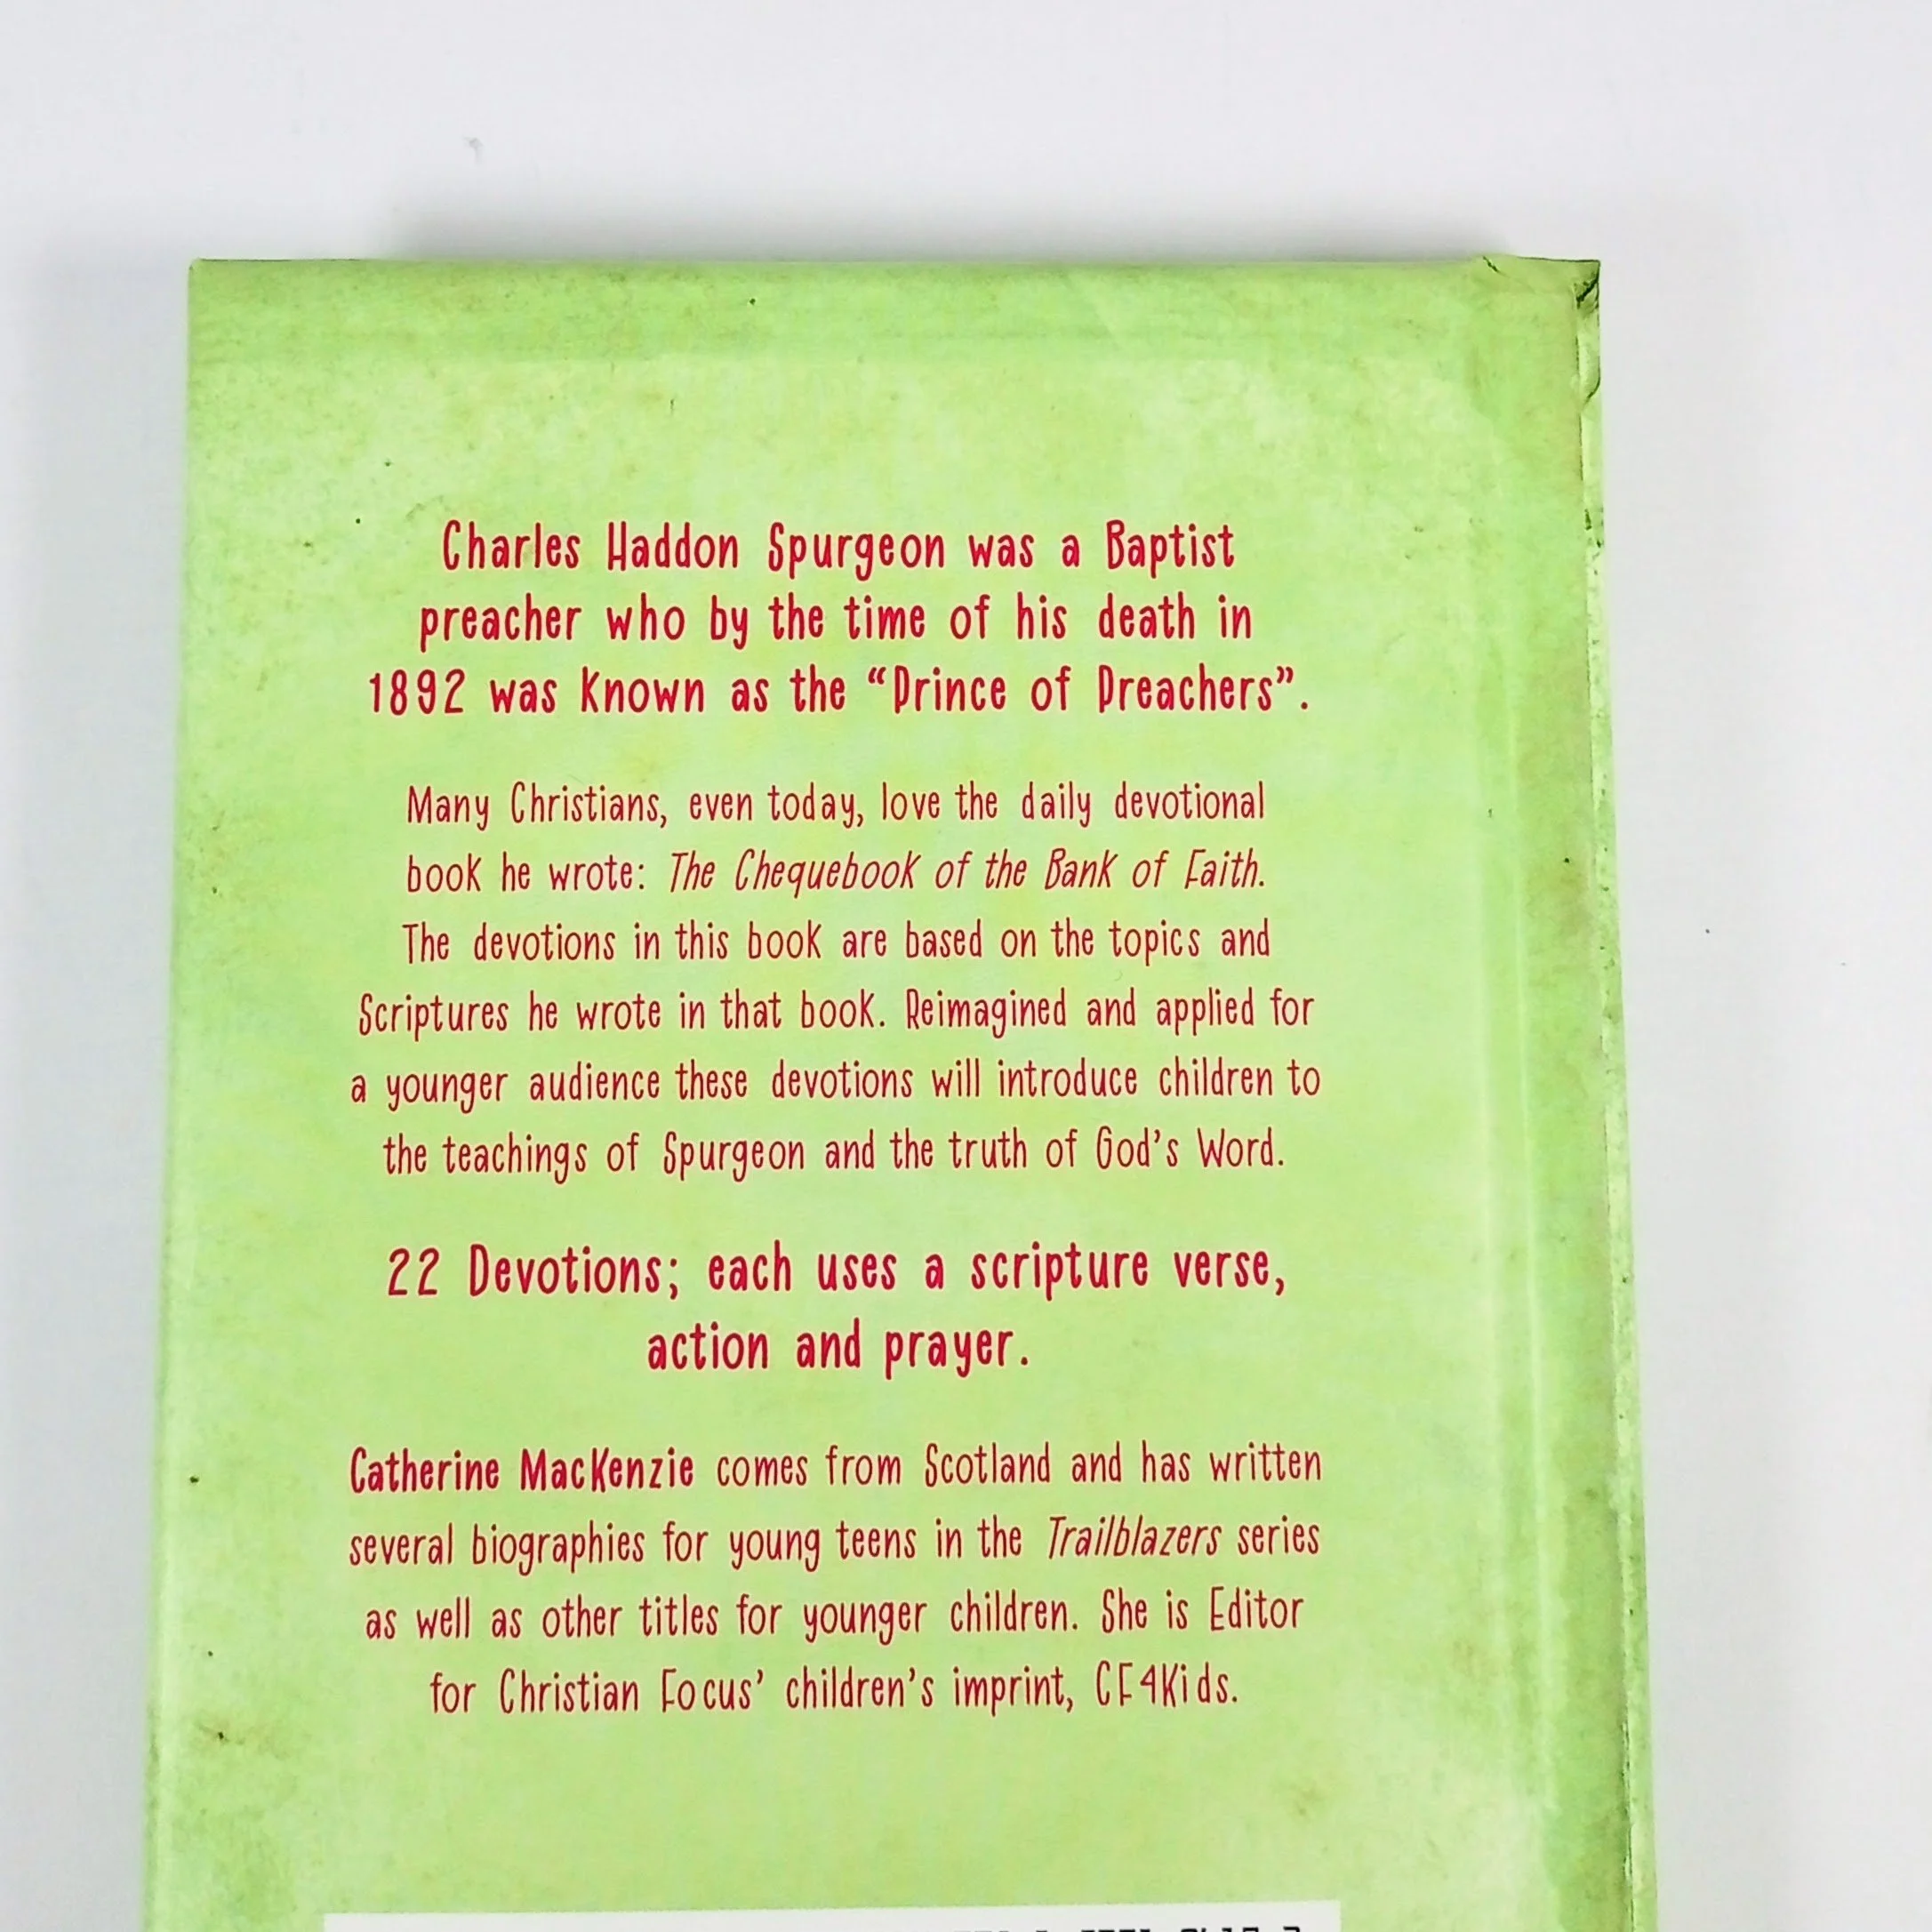 Charles Haddon Spurgeon was a Baptist
preacher who by the time of his death in
1892 was known as the “Prince of Preachers”.
Many Christians, even today, love the daily devotional
book he wrote: The Chequebook of the Bank of Faith.
The devotions in this book are based on the topics and
Scriptures he wrote in that book. Reimagined and applied for
a younger audience these devotions will introduce children to
the teachings of Spurgeon and the truth of God’s Word.
22 Devotions; each uses a scripture verse,
action and prayer.
Catherine MacKenzie comes from Scotland and has written
several biographies for young teens in the Trailblazers series
as well as other titles for younger children. She is Editor
for Christian Focus’ children’s imprint, CF4Kids.